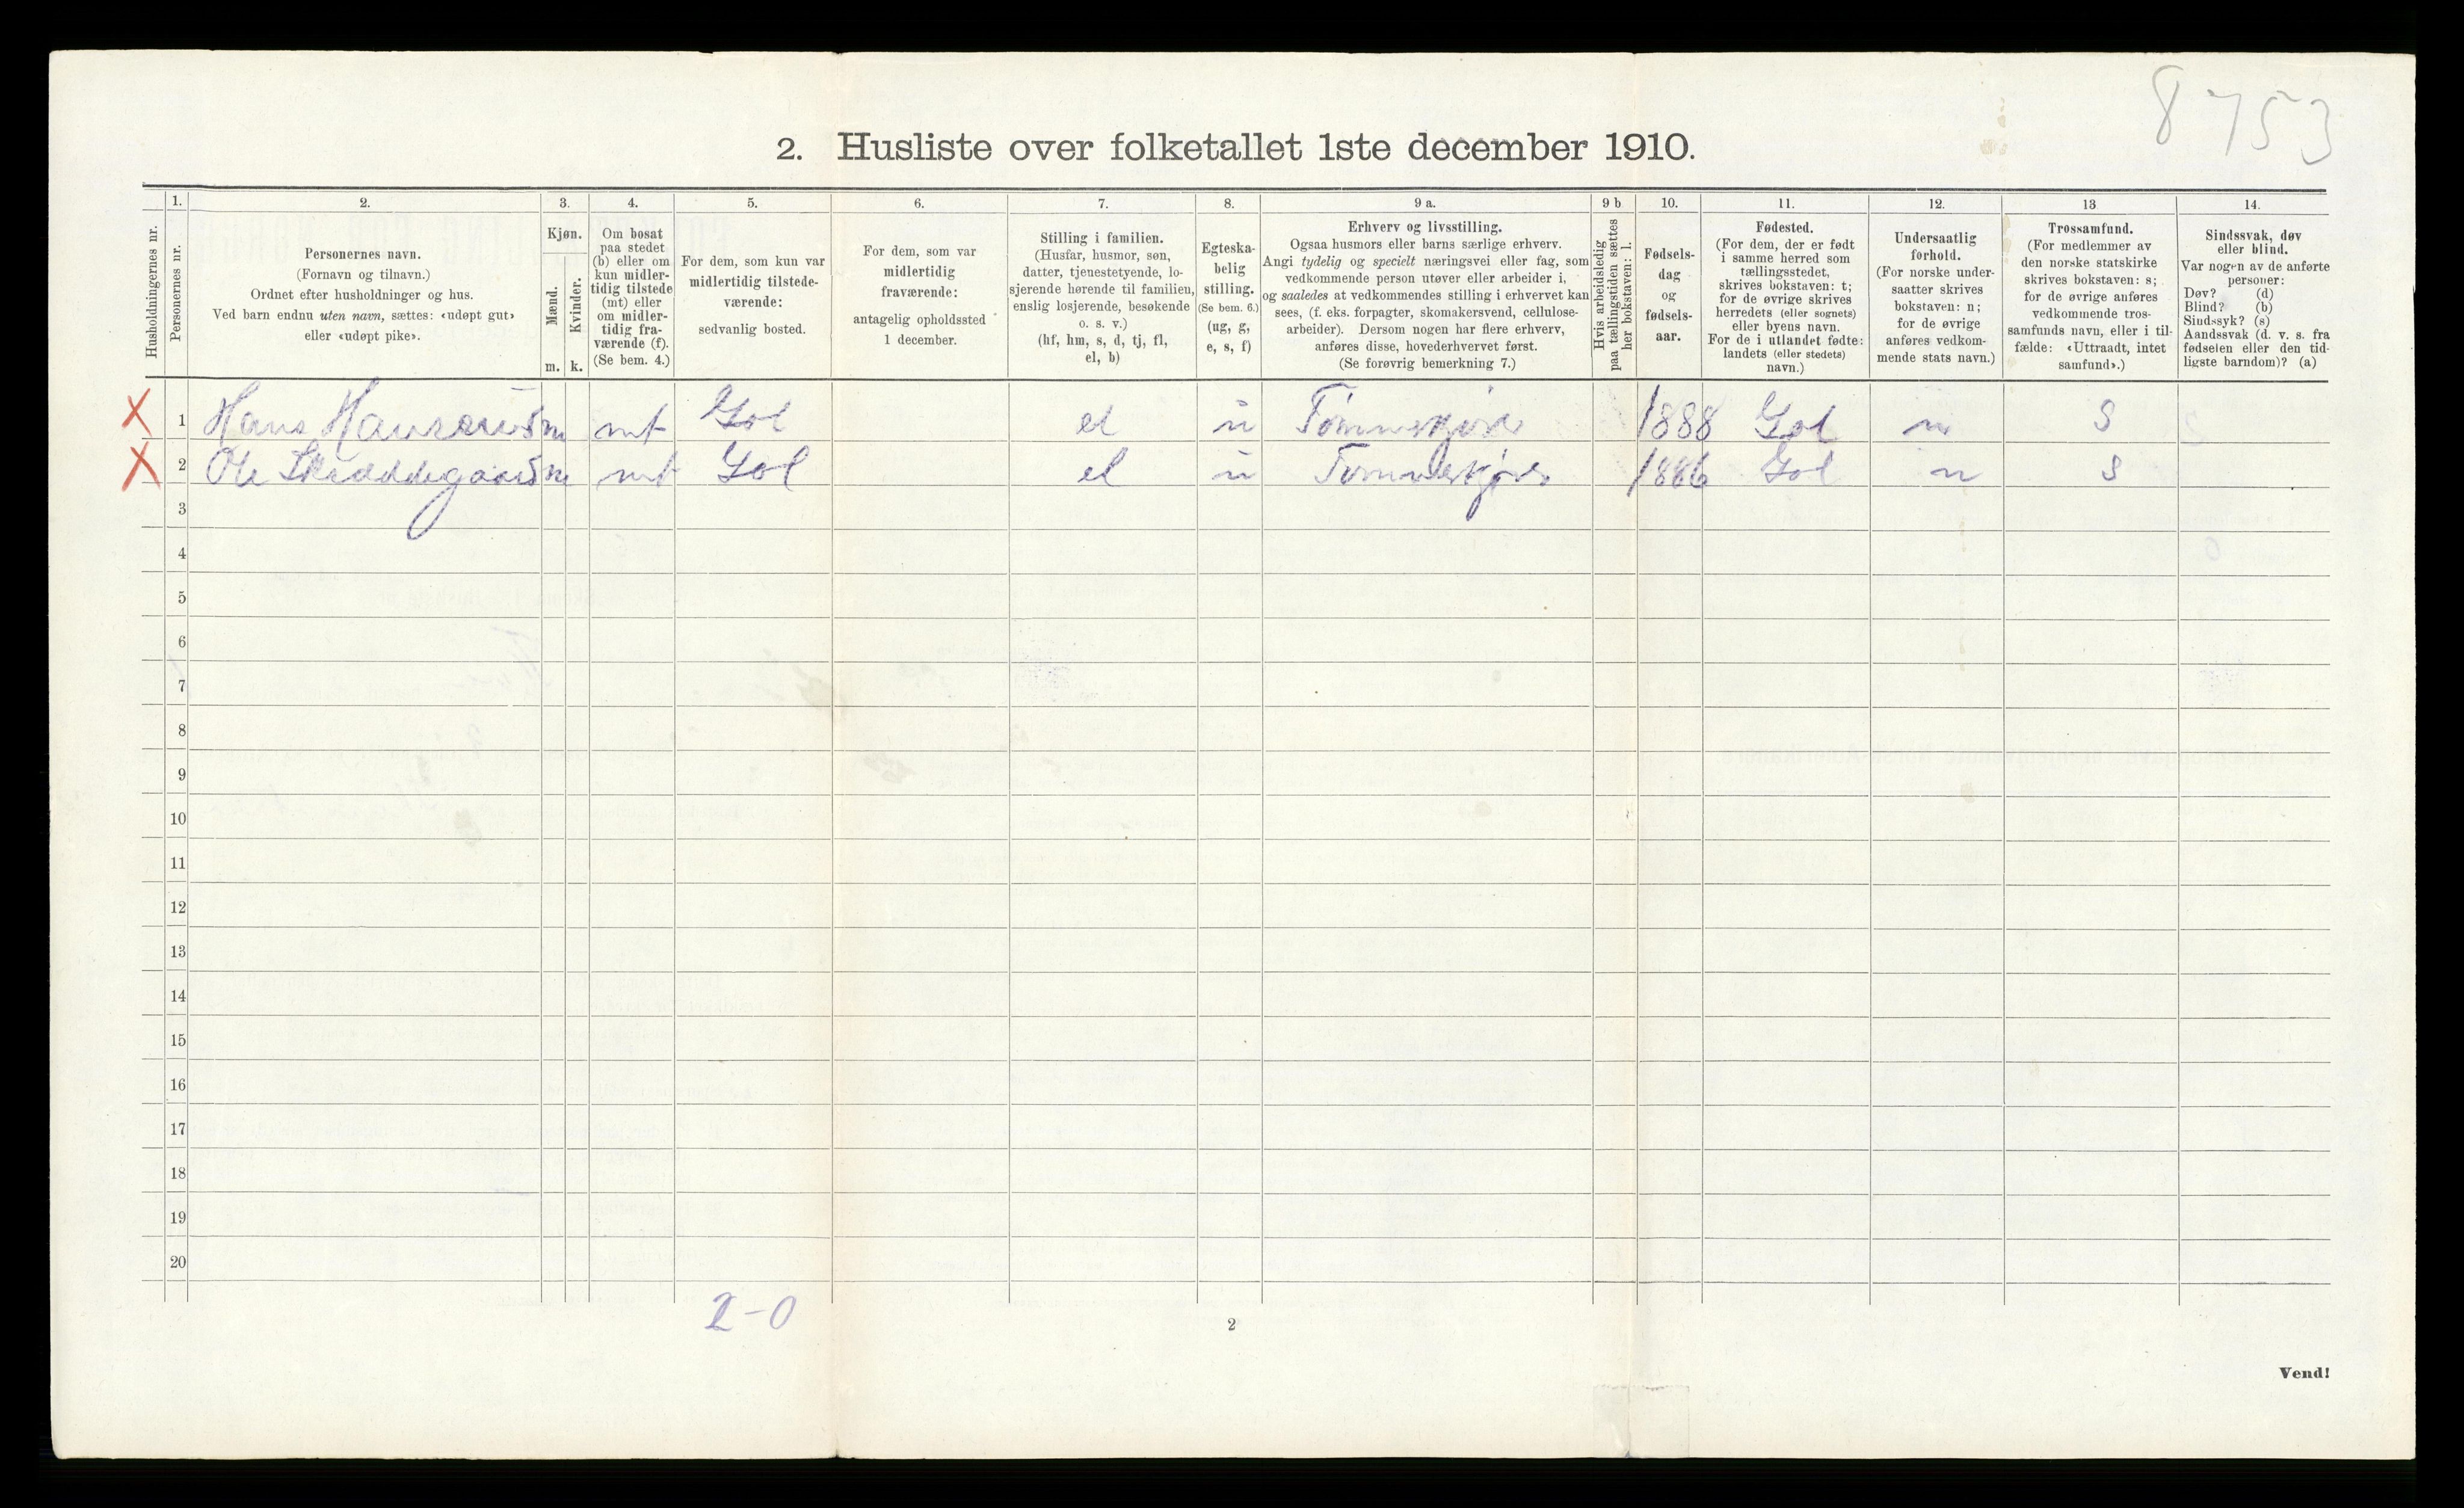 8753
2. Husliste over folketallet 1ste december 1910.
Husholdningernes nr.
1.
Personernes nr.
2.
Personernes navn.
(Fornavn og tilnavn.)
Ordnet efter husholdninger og hus.
Ved barn endnu uten navn, sættes: «udøpt gut»
eller «udøpt pike».
3.
Kjøn.
Mænd.
Kvinder.
m. k.
4.
Om bosat
paa stedet
(b) eller om
kun midler-
tidig tilstede
(mt) eller
om midler-
tidig fra-
værende (f).
(Se bem. 4.)
5.
For dem, som kun var
midlertidig tilstede-
værende:
sedvanlig bosted.
6.
For dem, som var
midlertidig
fraværende:
antagelig opholdssted
1 december.
7.
Stilling i familien.
(Husfar, husmor, søn,
datter, tjenestetyende, lo-
sjerende hørende til familien,
enslig losjerende, besøkende
o. s. v.)
(hf, hm, s, d, tj, fl,
el, b)
8.
Egteska-
belig
stilling.
(Se bem. 6.)
(ug, g,
e, s, f)
9 a.
Erhverv og livsstilling.
Ogsaa husmors eller barns særlige erhverv.
Angi tydelig og specielt næringsvei eller fag, som
vedkommende person utøver eller arbeider i,
og saaledes at vedkommendes stilling i erhvervet kan
sees, (f. eks. forpagter, skomakersvend, cellulose-
arbeider). Dersom nogen har flere erhverv,
anføres disse, hovederhvervet først.
(Se forøvrig bemerkning 7.)
9 b
Hvis arbeidsledig
paa tællingstiden sættes
her bokstaven: l.
10.
Fødsels-
dag
og
fødsels-
aar.
11.
Fødested.
(For dem, der er født
i samme herred som
tællingsstedet,
skrives bokstaven: t;
for de øvrige skrives
herredets (eller sognets)
eller byens navn.
For de i utlandet fødte:
landets (eller stedets)
navn.)
12.
Undersaatlig
forhold.
(For norske under-
saatter skrives
bokstaven: n;
for de øvrige
anføres vedkom-
mende stats navn.)
13
Trossamfund.
(For medlemmer av
den norske statskirke
skrives bokstaven: s;
for de øvrige anføres
vedkommende tros-
samfunds navn, eller i til-
fælde: «Uttraadt, intet
samfund».)
14.
Sindssvak, døv
eller blind.
Var nogen av de anførte
personer:
Døv? (d)
Blind? (b)
Sindssyk? (s)
Aandssvak (d. v. s. fra
fødselen eller den tid-
ligste barndom)? (a)
X 1 Hans m mt Gol el u Tømmerkjører 1888 Gol n S
X 2 Ole m mt Gol el u Tømmerkjører 1886 Gol n S
3
4
5
6
7
8
9
10
11
12
13
14
15
16
17
18
19
20
2-0
2
Vend!